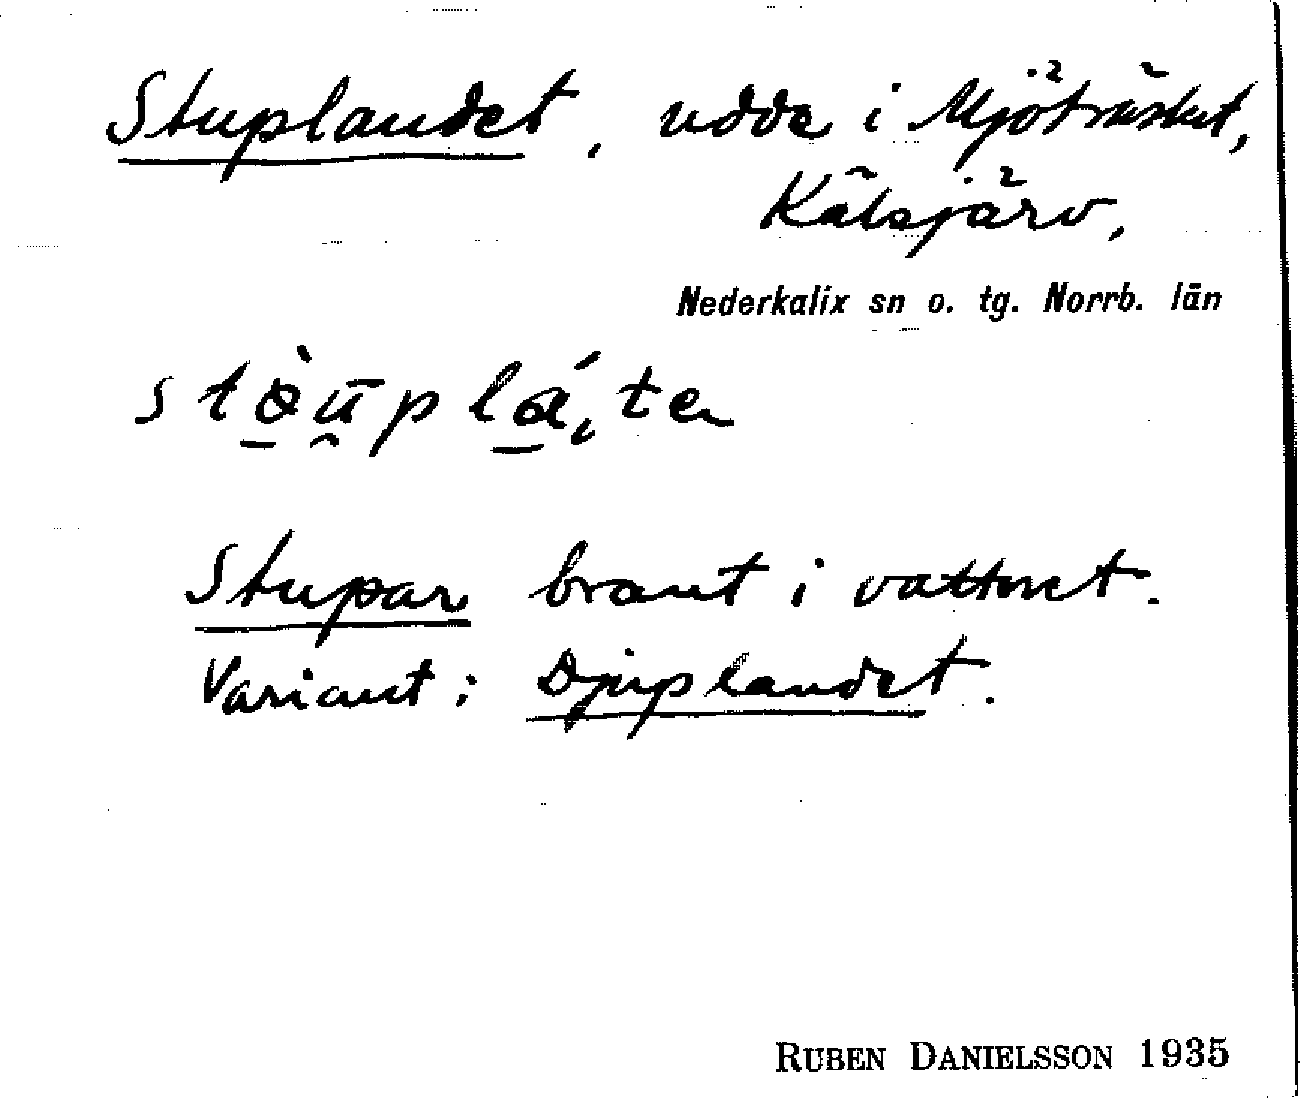 Stuplandet, udde i Mjöträsket,
Kälsjärv,
Nederkalix sn o. tg. Norrb. län
Stupar brant i vattnet.
Variant: Djuplandet.
RUBEN DANIELSSON 1935